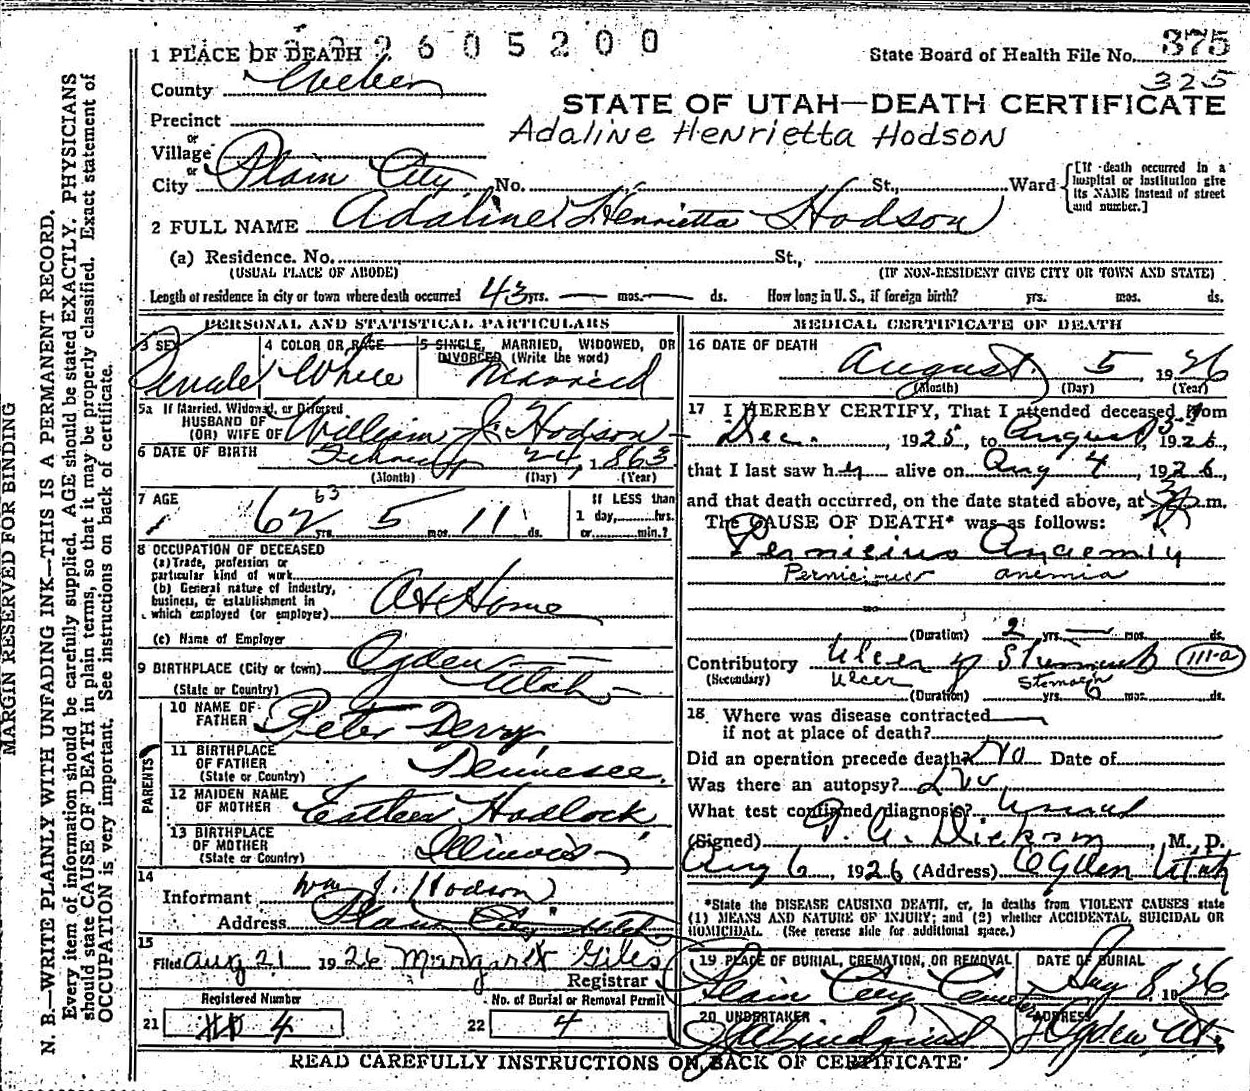 2605200
1 PLACE OF DEATH
State Board of Health File No. 375
325
County Weber
STATE OF UTAH—DEATH CERTIFICATE
Precinct
Adaline Henrietta Hodson
or
Village
or
City Plain City No. St., Ward
[If death occurred in a hospital or institution give its NAME instead of street and number.]
2 FULL NAME Adaline Henrietta Hodson
(a) Residence. No. St.,
(USUAL PLACE OF ABODE) (IF NON-RESIDENT GIVE CITY OR TOWN AND STATE)
Length of residence in city or town where death occurred 43 yrs. — mos. — ds. How long in U. S., if foreign birth? yrs. mos. ds.
PERSONAL AND STATISTICAL PARTICULARS
3 SEX 4 COLOR OR RACE 5 SINGLE, MARRIED, WIDOWED, OR
DIVORCED (Write the word)
Female White Married
5a If Married, Widowed, or Divorced
HUSBAND OF
(OR) WIFE OF William J. Hodson
6 DATE OF BIRTH February 24, 1863
(Month) (Day) (Year)
7 AGE 63
62 yrs. 5 mos. 11 ds.
If LESS than
1 day, hrs.
or min.?
8 OCCUPATION OF DECEASED
(a) Trade, profession or
particular kind of work
(b) General nature of industry,
business, or establishment in
which employed (or employer) At Home
(c) Name of Employer
9 BIRTHPLACE (City or town) Ogden
(State or Country) Utah
PARENTS
10 NAME OF
FATHER Peter Derry
11 BIRTHPLACE
OF FATHER
(State or Country) Tennesee
12 MAIDEN NAME
OF MOTHER Esther Hadlock
13 BIRTHPLACE
OF MOTHER
(State or Country) Illinois
14
Informant Wm J. Hodson
Address Plain City Utah
15
Filed Aug 21 1926 Margaret Giles
Registrar
Registered Number No. of Burial or Removal Permit
21 4 22 4
MEDICAL CERTIFICATE OF DEATH
16 DATE OF DEATH
August 5, 1926
(Month) (Day) (Year)
17 I HEREBY CERTIFY, That I attended deceased from
Dec. , 1925, to August 5 1926,
that I last saw her alive on Aug 4, 1926,
and that death occurred, on the date stated above, at m.
The CAUSE OF DEATH* was as follows:
Pernicius Anaemiy
Pernicious anemia
(Duration) 2 yrs. — mos. ds.
Contributory Ulcer of Stomach 111-a
(Secondary) Ulcer Stomach
(Duration) yrs. 6 mos. ds.
18 Where was disease contracted
if not at place of death?
Did an operation precede death? No Date of
Was there an autopsy? No
What test confirmed diagnosis?
(Signed) Dickson, M. D.
Aug 6, 1926 (Address) Ogden Utah
*State the DISEASE CAUSING DEATH, or, in deaths from VIOLENT CAUSES state
(1) MEANS AND NATURE OF INJURY; and (2) whether ACCIDENTAL, SUICIDAL OR
HOMICIDAL. (See reverse side for additional space.)
19 PLACE OF BURIAL, CREMATION, OR REMOVAL DATE OF BURIAL
Plain City Cemetery Aug 8, 1926
20 UNDERTAKER ADDRESS
Ogden, Ut.
READ CAREFULLY INSTRUCTIONS ON BACK OF CERTIFICATE
MARGIN RESERVED FOR BINDING
N. B.—WRITE PLAINLY WITH UNFADING INK—THIS IS A PERMANENT RECORD.
Every item of information should be carefully supplied. AGE should be stated EXACTLY. PHYSICIANS
should state CAUSE OF DEATH in plain terms, so that it may be properly classified. Exact statement of
OCCUPATION is very important. See instructions on back of certificate.